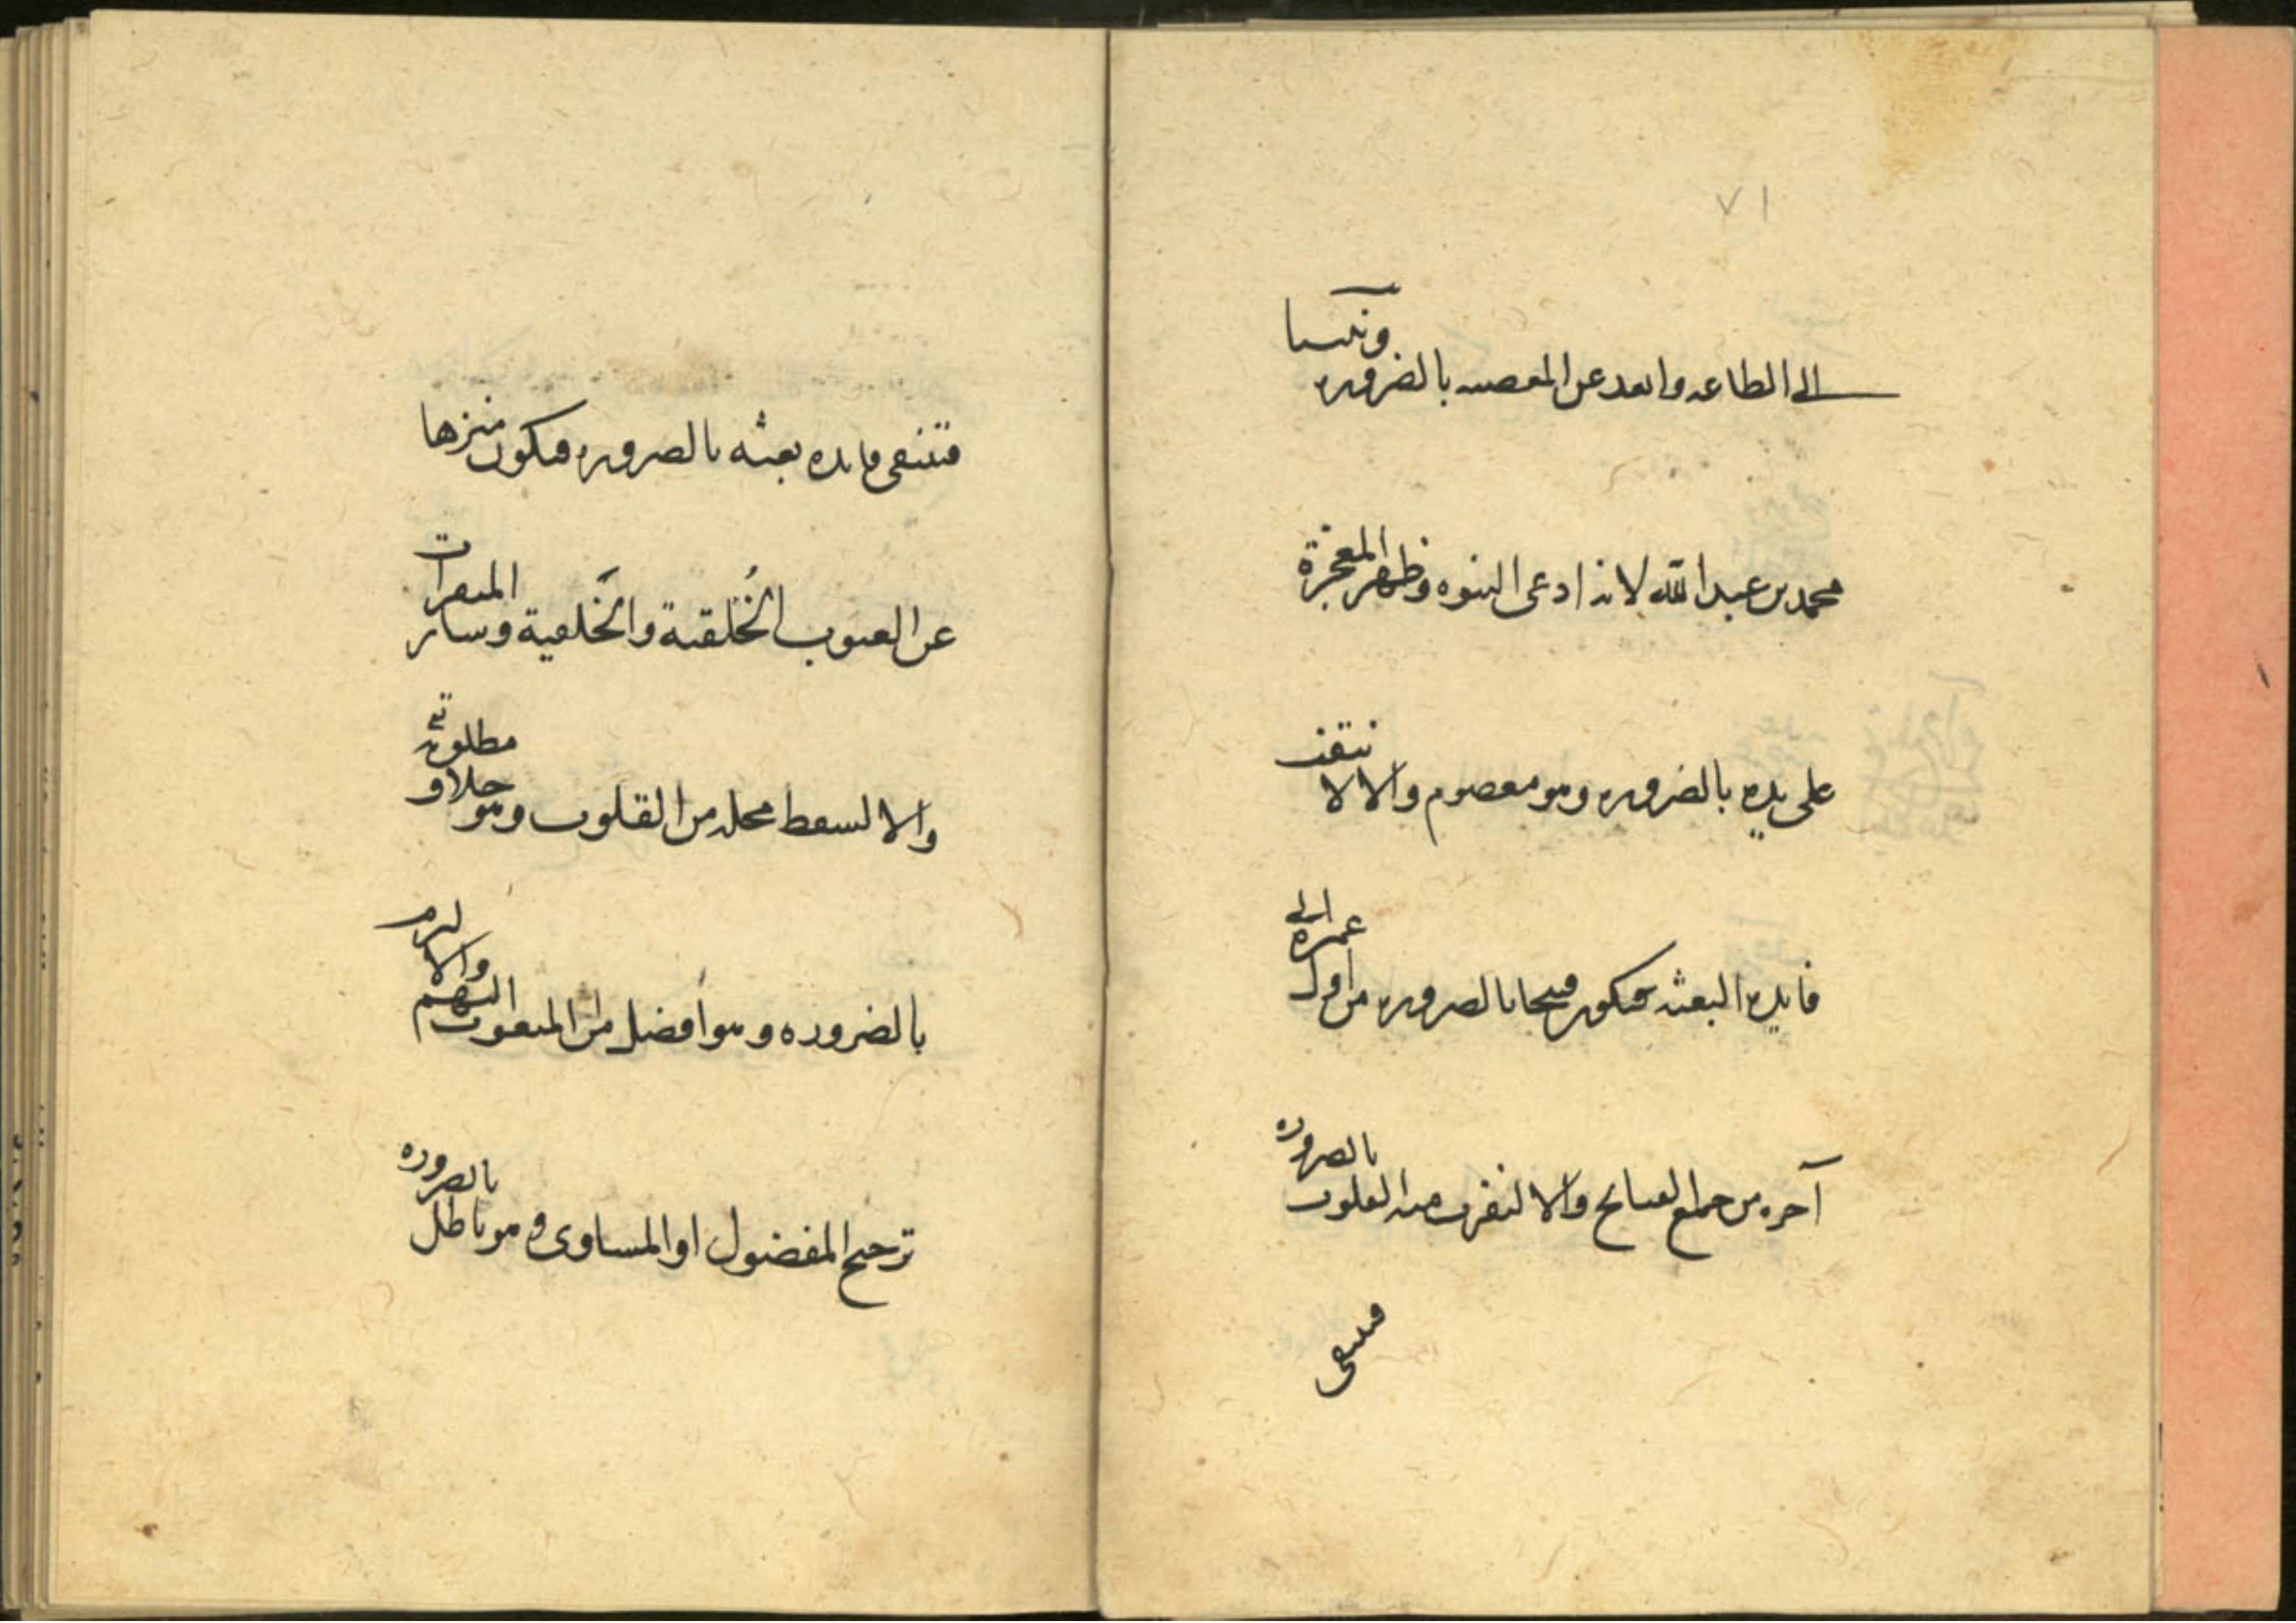 ٧١
الى الطاعه وابعد عن المعصيه بالضروره ونبينا
محمد بن عبد الله لانه ادعى النبوه وظهر المعجزة
على يده بالضروره وهو معصوم والا لانتفت
فايدة البعثه فيكون قبيحا بالضروره من اول عمره الى
آخره من جميع القبايح والا لنفرت عنه القلوب بالضروره
فينتفى
فتنتفى فايده بعثه بالضروره فيكون منزها
عن العيوب الخُلقية والخَلقية وساير المنفرات
والا لسقط محله من القلوب وهو خلاف مطلوبه تع
بالضروره وهو افضل من المبعوث اليهم والا لزم
ترجيح المفضول او المساوى وهو باطل بالضروره